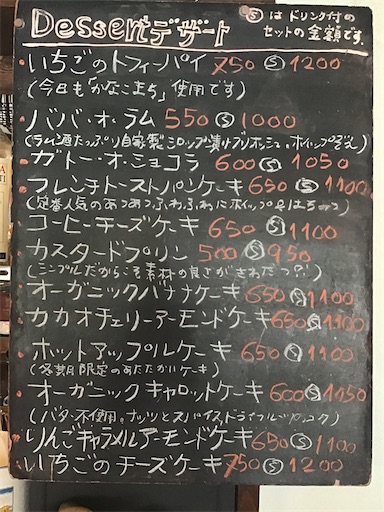 Dessertデザート
Ⓢはドリンク付の
セットの金額です。
いちごのトフィーパイ 750 Ⓢ 1200
(今日も「かなこまち」使用です)
ババ・オ・ラム 550 Ⓢ 1000
(ラム酒たっぷり自家製シロップ漬けブリオッシュ。ホイップ
ガトー・オ・ショコラ 600 Ⓢ 1050
フレンチトーストパンケーキ 650 Ⓢ 1100
(定番人気のあつあつふわふわにホイップ
コーヒーチーズケーキ 650 Ⓢ 1100
カスタードプリン 500 Ⓢ 950
(シンプルだからこそ素材の良さがきわだつ?)
オーガニックバナナケーキ 650 Ⓢ 1100
カカオチェリーアーモンドケーキ 650 Ⓢ 1100
ホットアップルケーキ 650 Ⓢ 1100
(冬期限定のあたたかいケーキ)
オーガニックキャロットケーキ 600 Ⓢ 1050
(バター不使用。ナッツとスパイスドライフルーツ
りんごキャラメルアーモンドケーキ 650 Ⓢ 1100
いちごのチーズケーキ 750 Ⓢ 1200